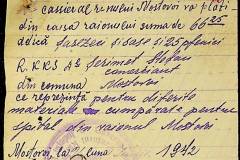 cassier de
Mostovoi va plăti
din casa raionului suma de 66 25
adică șasezeci și sase și 25 pfenici
R.K.K.S. Stefan
comerciant
din comuna Mostovoi
ce reprezintă pentru diferite
materiale cumpărate pentru
spital din raionul Mostovoi
Mostovoi, la 1942